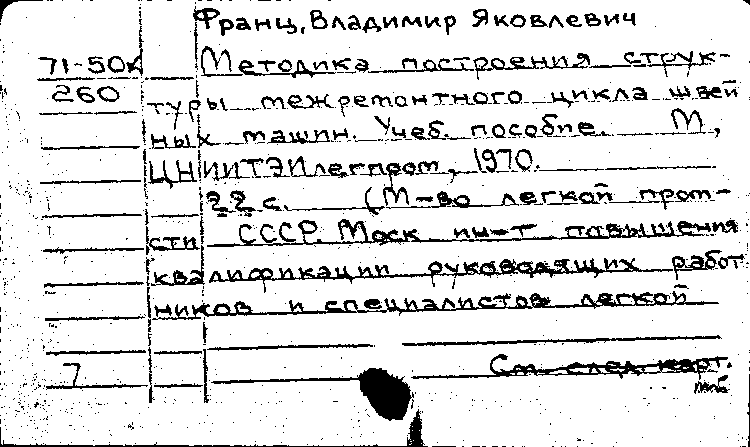 Франц, Владимир Яковлевич
71-50к Методика построения струк-
260 туры межремонтного цикла швей
ных машин. Учеб. пособие. М,
ЦНИИТЭИлегпром, 1970.
22 с. (М-во легкой пром-
сти СССР. Моск ин-т повышения
квалификации руководящих работ
ников и специалистов легкой
7 См. след. карт.